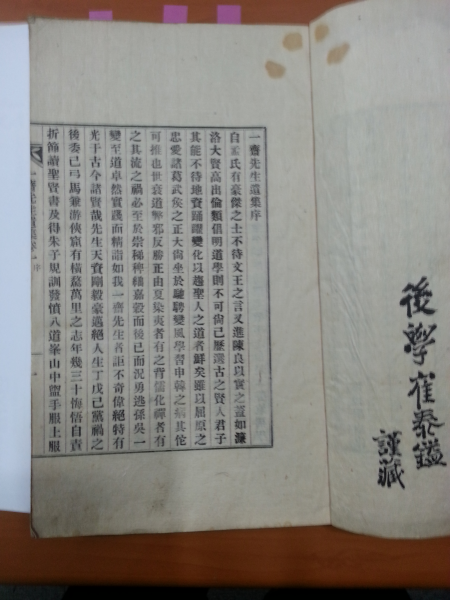 後學崔泰鑑
謹藏
一齋先生遺集序
自孟氏有豪傑之士不待文王之言又進陳良以實之蓋如濂
洛大賢高出倫類倡明道學則不可尙已歷選古之賢人君子
其能不待地資踊躍變化以趨聖人之道者鮮矣雖以屈原之
忠愛諸葛武矦之正大尙坐於馳騁變風學習申韓之病其佗
可推也世衰道弊邪反勝正由夏染夷者有之背儒化禪者有
之其流之禍必至於崇稊稗穡嘉穀而後已而況勇逃孫吳一
變至道卓然實踐而精詣如我一齋先生者詎不奇偉絕特有
光于古今諸賢哉先生天資剛毅豪邁絕人生丁戊己黨禍之
後委己弓馬兼游俠窟有橫嘉萬里之志年幾三十悔悟自責
折節讀聖賢書及得朱子規訓發憤入道峯山中盥手服上服